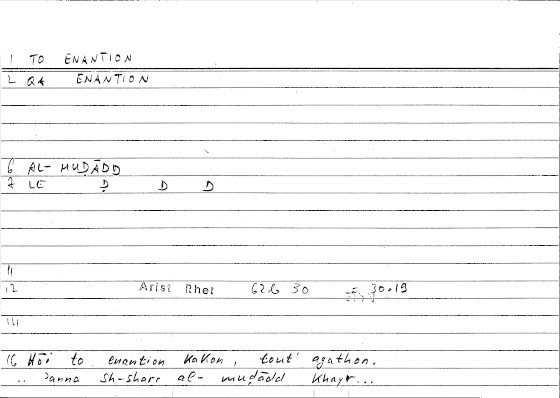 1 TO ENANTION
2 QA ENANTION
6 AL- MUḌĀDD
7 LE Ḍ D D
11
12 Arist Rhet 62b 30 30.19
14
16 Hōi to enantion kakon, tout' agathon.
.. ʾanna sh-sharr al- muḍādd khayr...